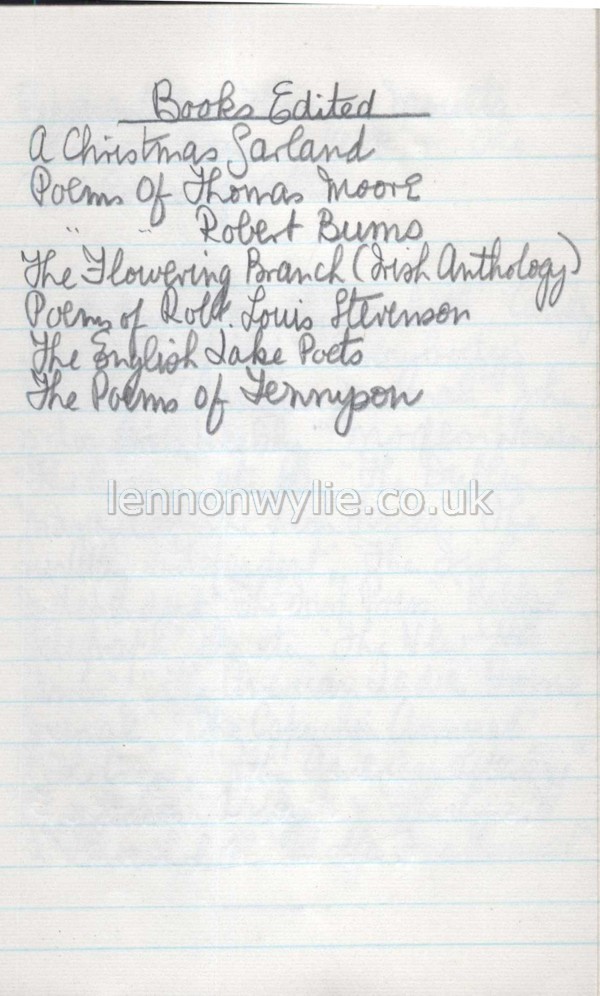 Books Edited
A Christmas Garland
Poems Of Thomas Moore
" " Robert Burns
The Flowering Branch (Irish Anthology)
Poems of Robt. Louis Stevenson
The English Lake Poets
The Poems of Tennyson
lennonwylie.co.uk